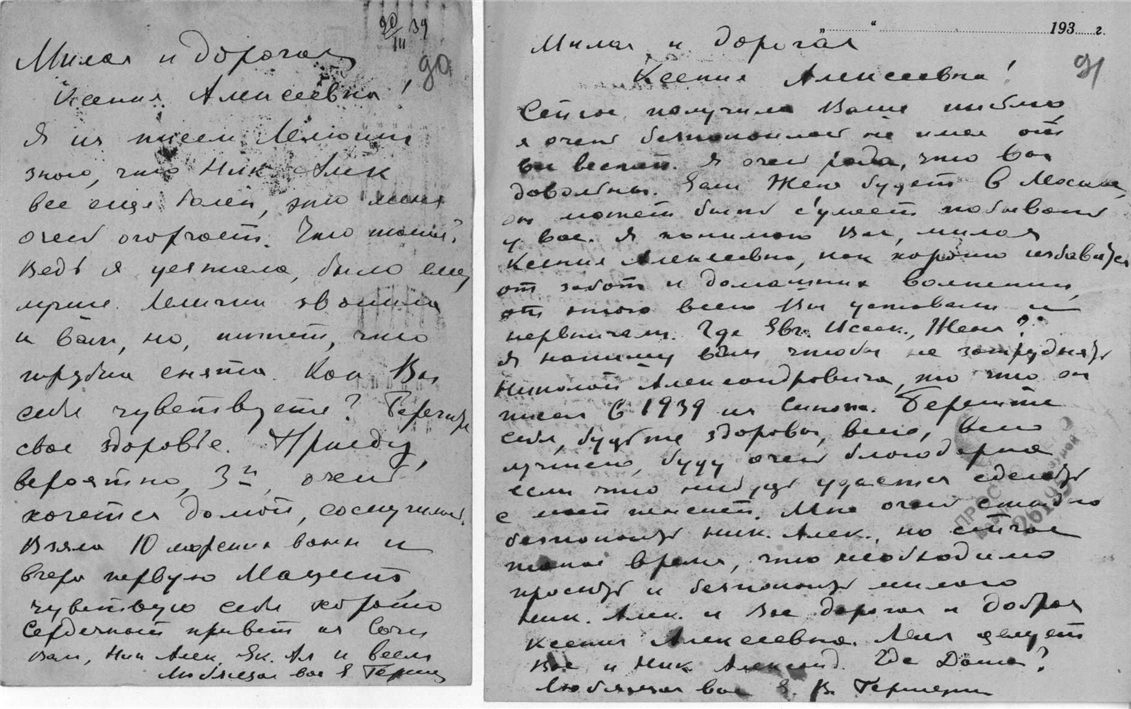 20/III 39
90
Милая и дорогая
Ксения Алексеевна!
Я из писем Лёлишны
знаю, что Ник Алек
все еще болен, это меня
очень огорчает. Что такое?
Ведь я уезжала, было ему
лучше. звонила
к Вам, но, пишет, что
трубка снята. Как Вы
себя чувствуете? Берегите
свое здоровье. Приеду,
вероятно, 3го, очень
хочется домой, соскучилась.
Взяла 10 морских ванн и
вчера первую Мацесту,
чувствую себя хорошо
Сердечный привет из Сочи
Вам, Ник Алек Ек. Ал и всем
Любящая вас Е Герцег
193 г.
91
Милая и дорогая
Ксения Алексеевна!
Сейчас получила Ваше письмо
я очень безпокоилась не имея от
вас вестей. Я очень рада, что Вы
довольны. Если Женя будет в Москве,
он может быть сумеет побывать
у вас. Я понимаю Вас, милая
Ксения Алексеевна, как хорошо избавиться
от забот и домашних волнений,
от этого всего Вы уставали и
нервничали. Где Евг. Исаак., Женя??
Я напишу вам чтобы не затруднять
Николай Александровича, то что он
писал в 1939 из Берегите
себя, будьте здоровы, всего, всего
лучшего, буду очень благодарна
если что нибудь удастся сделать
с моей пенсией. Мне очень стыдно
безпокоить Ник. Алек., но сейчас
такое время, что необходимо
просить и безпокоить милого
Ник. Алек. и Вас дорогая и добрая
Ксения Алексеевна. Леля целует
Вас и Ник Александ. Где Даша?
Любящая вас Е. В. Герцег